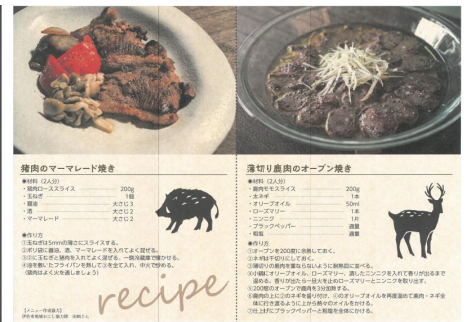 猪肉のマーマレード焼き
●材料（2人分）
・猪肉ローススライス 200g
・玉ねぎ 1個
・醤油 大さじ3
・酒 大さじ2
・マーマレード 大さじ2
●作り方
①玉ねぎは5mmの薄さにスライスする。
②ポリ袋に醤油、酒、マーマレードを入れてよく混ぜる。
③②に玉ねぎと猪肉を入れてよく混ぜ、一晩冷蔵庫で寝かせる。
④油を敷いたフライパンを熱して③を全て入れ、中火で炒める。
（猪肉はよく火を通しましょう）
recipe
【メニュー作成協力】
薄切り鹿肉のオーブン焼き
●材料（2人分）
・鹿肉モモスライス 200g
・太ネギ 1本
・オリーブオイル 50ml
・ローズマリー 1本
・ニンニク 1片
・ブラックペッパー 適量
・粗塩 適量
●作り方
①オーブンを200度に余熱しておく。
②ネギは千切りにしておく。
③薄切りの鹿肉を重ならないように耐熱皿に並べる。
④小鍋にオリーブオイル、ローズマリー、潰したニンニクを入れて香りが出るまで
温める。香りが立ったら一旦火を止めローズマリーとニンニクを取り出す。
⑤200度のオーブンで鹿肉を3分加熱する。
⑥鹿肉の上に②のネギを盛り付け、④のオリーブオイルを再度温めて鹿肉・ネギ全
体に行き渡るように上から熱々のオイルをかける。
⑦仕上げにブラックペッパーと粗塩を全体にかける。